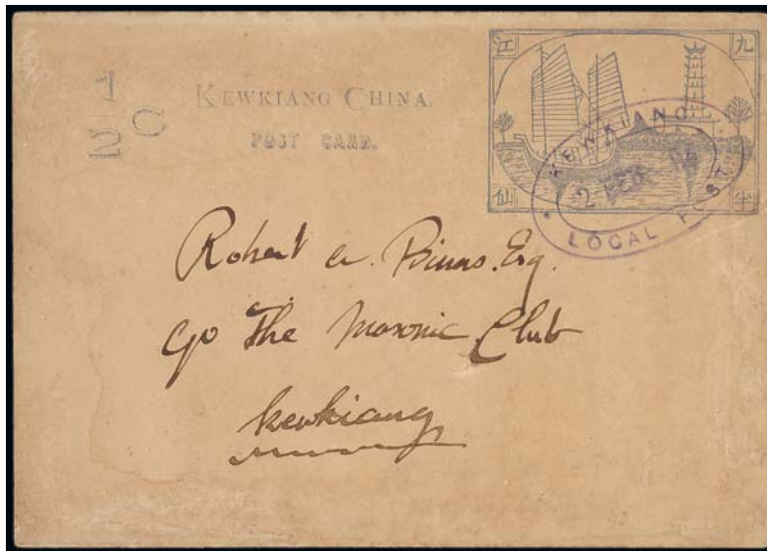 1/2 C
KEWKIANG CHINA.
POST CARD.
江 九
仙 半
KEWKIANG
2 FEB
LOCAL POST
Robert a.
c/o The Masonic Club
Kewkiang